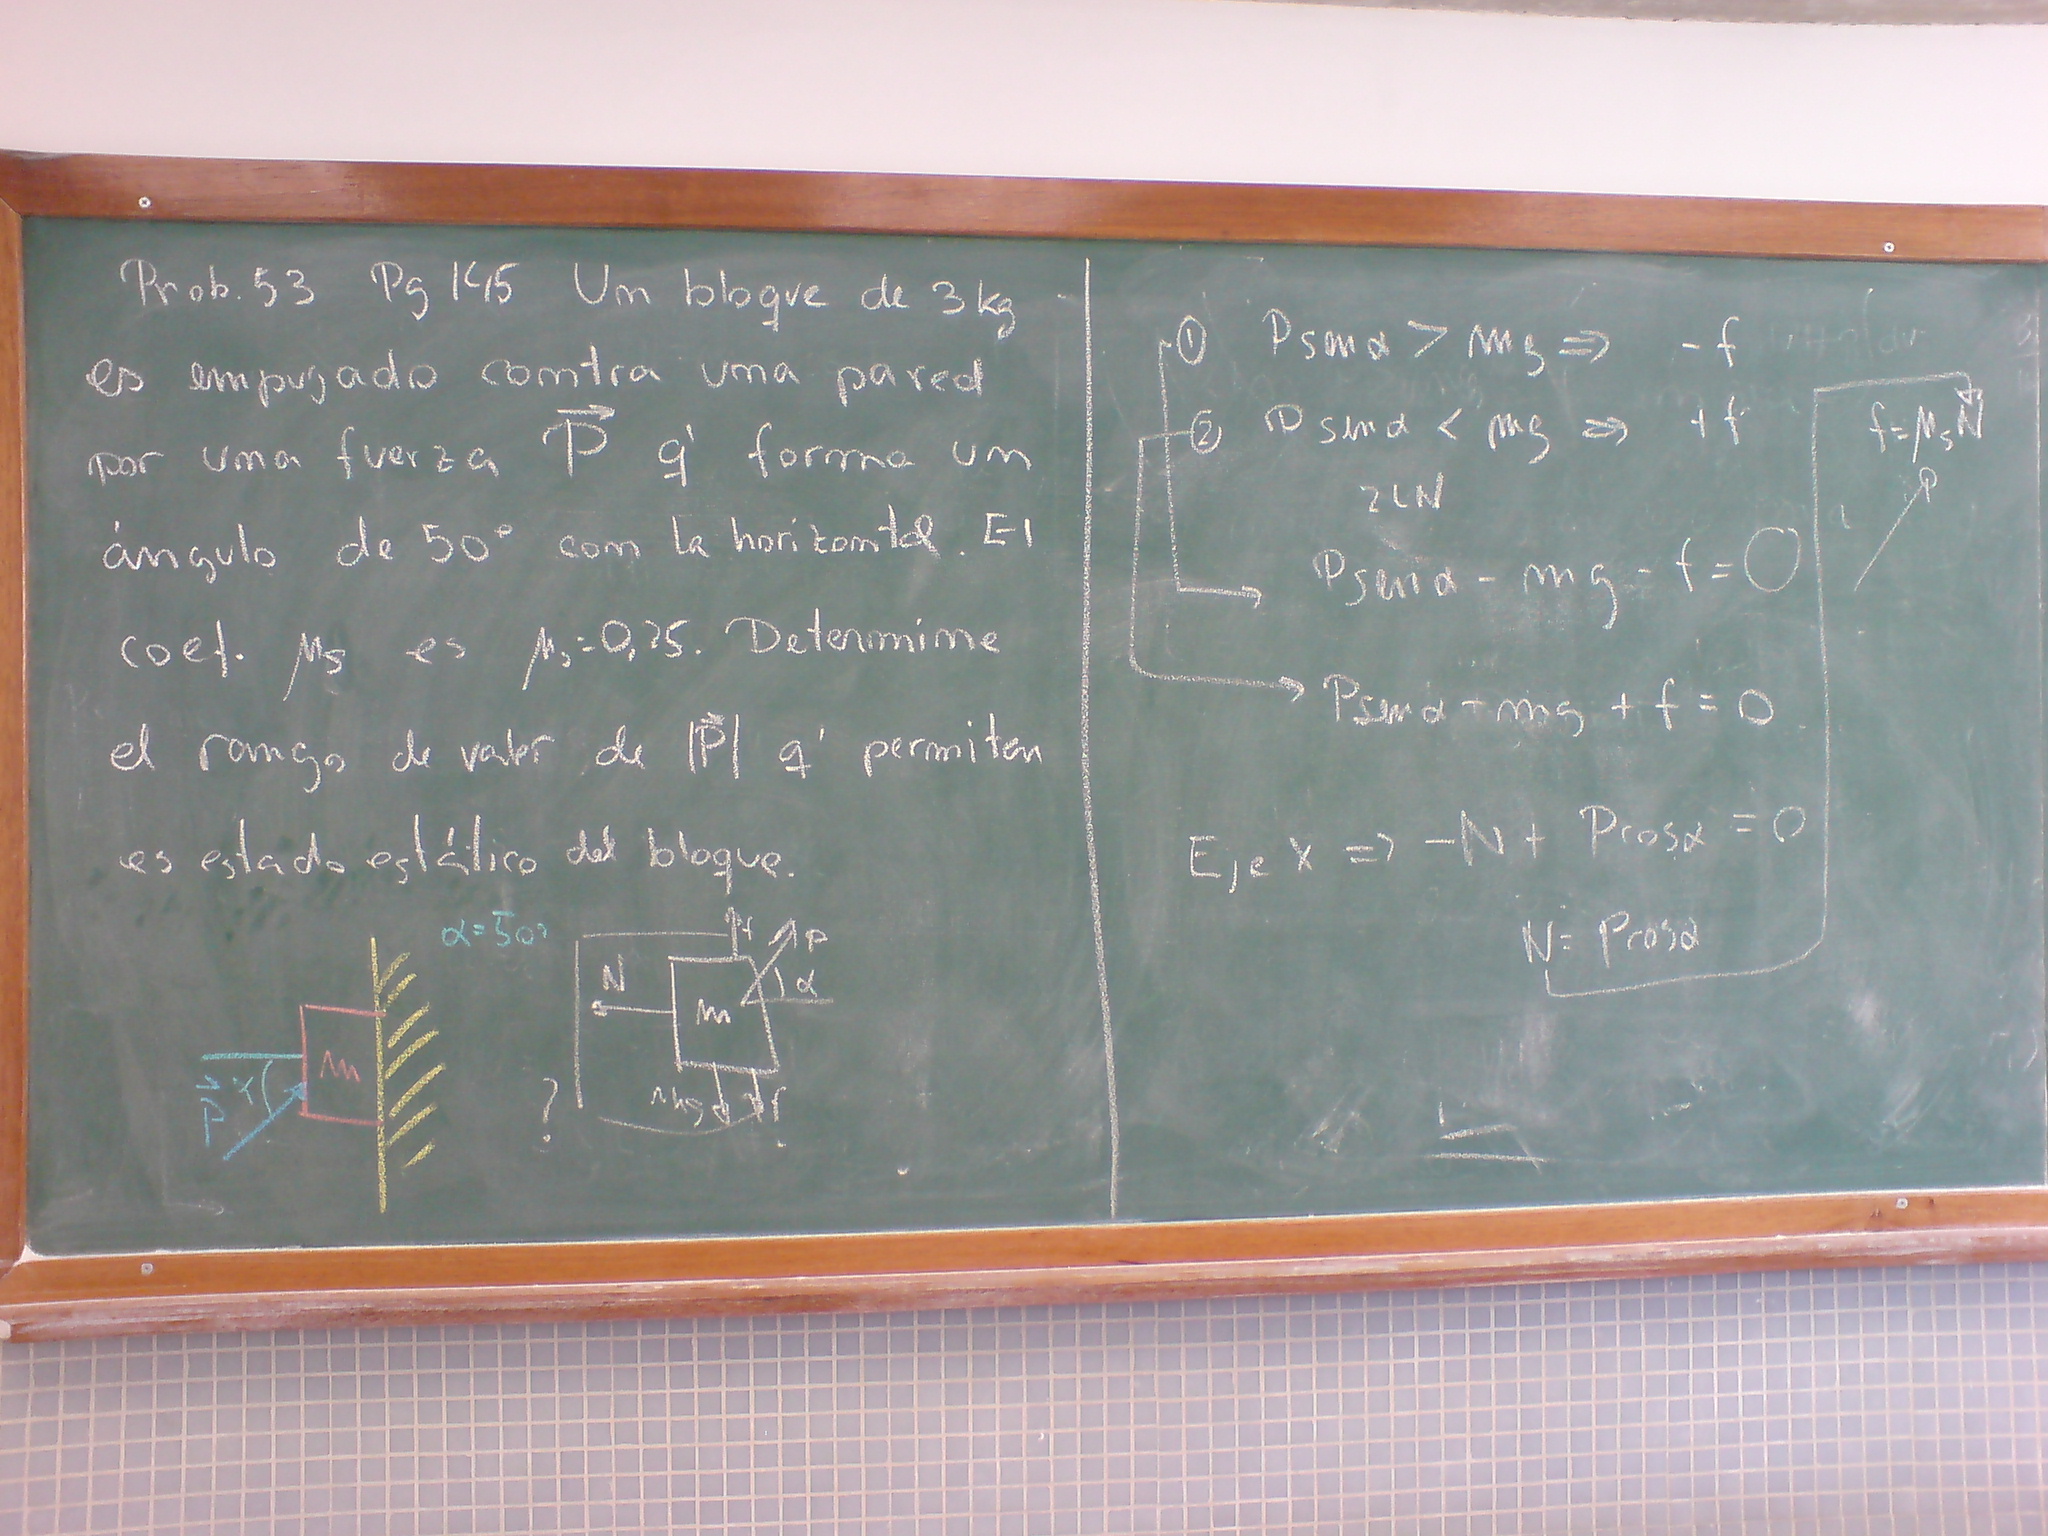 Prob. 53 Pg 145 Un bloque de 3 kg
es empujado contra una pared
por una fuerza P⃗ q' forma un
ángulo de 50° con la horizontal. El
coef. μs es μs=0,25. Determine
el rango de valor de |P⃗| q' permiten
es estado estático del bloque.
α=50°
m
P⃗
N
f
P
α
m
mg
f
?
① P sen α > mg ⇒ -f
② P sen α < mg ⇒ +f
P sen α - mg - f = 0
P sen α - mg + f = 0
Eje X ⇒ -N + P cos α = 0
N = P cos α
f = μs N